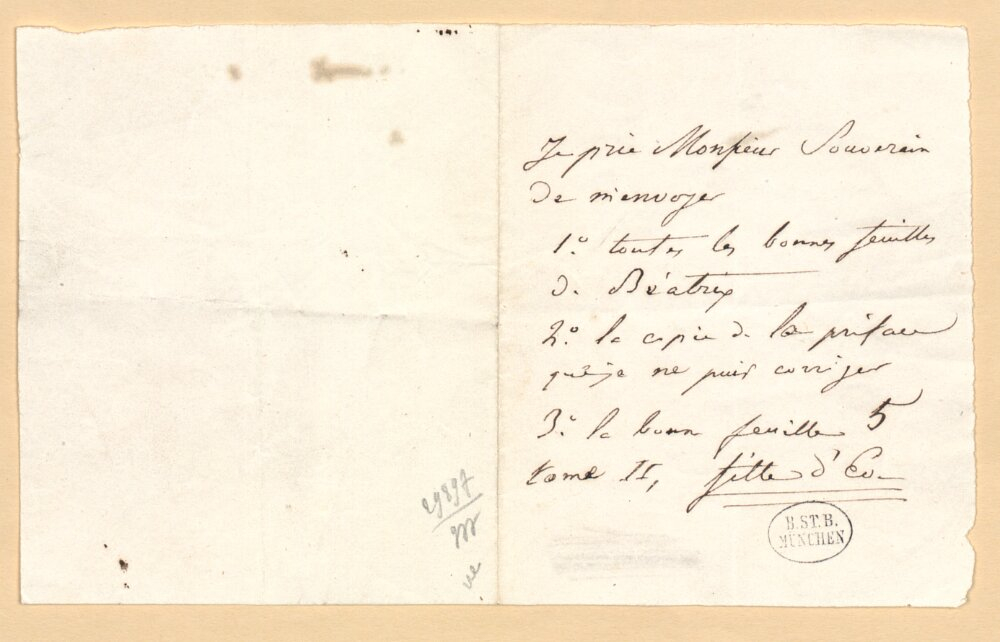 Je prie Monsieur Souverain
de m'envoyer
1° toutes les bonnes feuilles
de Béatrix
2° la copie de la préface
que je ne puis corriger
3° la bonne feuille 5
tome II, fille d'Eve
29897
B.ST.B.
MÜNCHEN